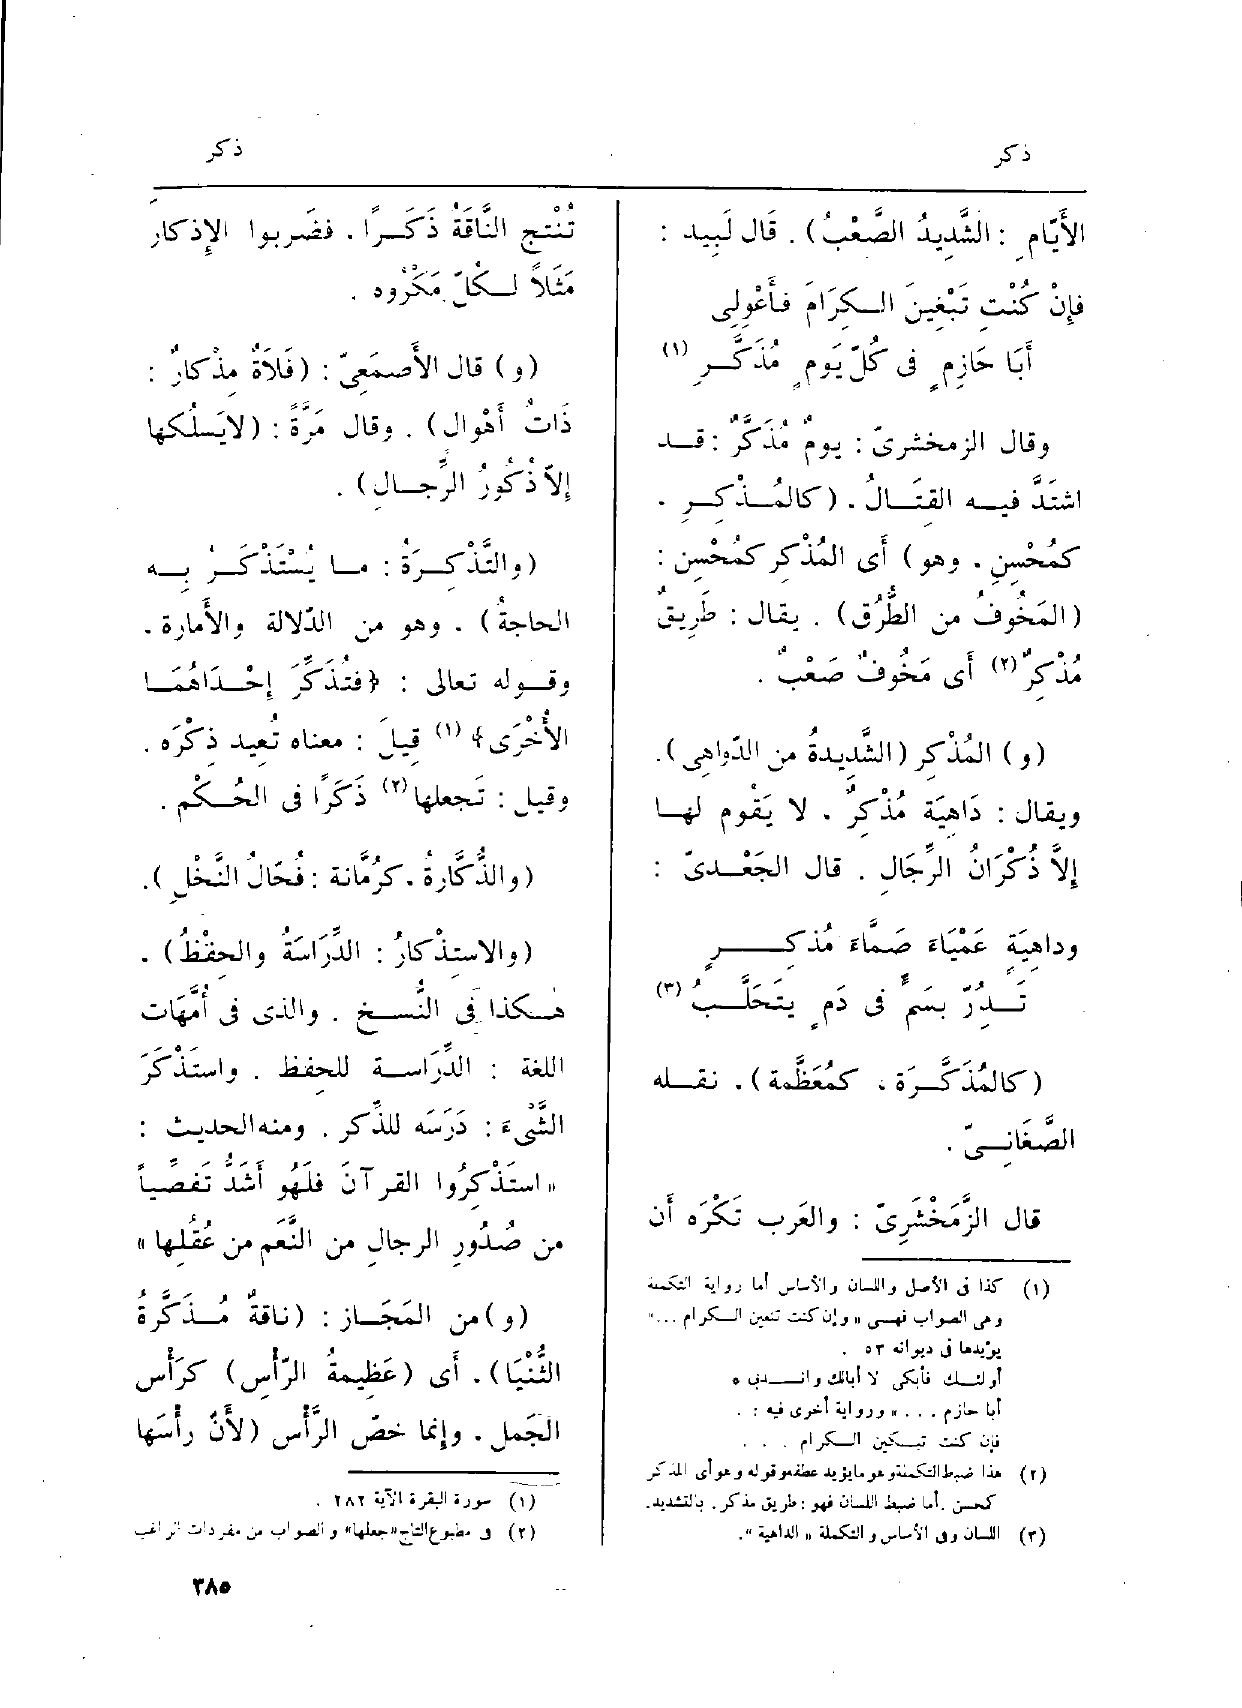 ذكر
ذكر
الأَيّامِ : الشَّدِيدُ الصَّعْبُ) . قَال لَبِيد :
فإنْ كُنْتِ تَبْغِينَ الكِرَامَ فأَعْوِلِى
أَبَا حَازِمٍ فى كُلّ يَومٍ مُذَكَّرِ (١)
وقال الزمخشرىّ : يومٌ مُذَكَّرٌ : قد
اشتَدَّ فيه القِتَالُ . (كالمُذْكِرِ .
كمُحْسِنٍ . وهو) أَى المُذْكِر كمُحْسِن :
(المَخُوفُ من الطُّرُقِ) . يقال : طَرِيقٌ
مُذْكِرٌ (٢) أَى مَخُوفٌ صَعْبٌ .
(و) المُذْكِر (الشَّدِيدةُ من الدّواهِى).
ويقال : دَاهِيَة مُذْكِرٌ . لا يَقُوم لها
إلاَّ ذُكْرَانُ الرِّجَالِ . قال الجَعْدىّ :
وداهِيَةٍ عَمْيَاءَ صَمَّاءَ مُذكِرٍ
تَدُرّ بسَمٍّ فى دَمٍ يتَحَلَّبُ (٣)
(كالمُذَكَّرَة ، كمُعَظَّمة) . نقله
الصَّغَانِىّ .
قال الزَّمَخْشَرِىّ : والعَرب تَكْرَه أَن
(١) كذا فى الأصل واللسان والأساس أما رواية التكملة
وهى الصواب فهى « وإن كنت تنعين الكرام ...»
يؤيدها فى ديوانه ٥٣ .
أولئك فابكى لا أبالك واندبى
أبا حازم ... » ورواية أخرى فيه : .
فإن كنت تبكين الكرام . . .
(٢) هذا ضبط التكملة وهو مايؤيد عطفه وقوله وهو أى المذكر
كمحسن . أما ضبط اللسان فهو : طريق مذكر . بالتشديد.
(٣) اللسان وفى الأساس والتكملة « الداهية ».
تُنْتِج النَّاقَةُ ذَكَرًا . فضَربوا الإِذكار
مَثَلاً لكُلّ مَكْرُوه .
(و) قال الأَصمَعِىّ : (فَلاَةٌ مِذْكارٌ :
ذَاتُ أَهْوال) . وقال مَرَّةً : (لايَسلُكها
إلاّ ذُكُورُ الرِّجال) .
(والتَّذْكِرَةُ : ما يُسْتَذْكَرُ بِه
الحاجةُ) . وهو من الدّلالة والأَمارة .
وقوله تعالى : ﴿فتُذَكِّرَ إحْداهُمَا
الأُخْرَى﴾ (١) قِيلَ : معناه تُعِيد ذِكْرَه .
وقيل : تَجعلها (٢) ذَكَرًا فى الحُكْم .
(والذُّكَّارةُ . كرُمَّانة : فُحّالُ النَّخْلِ).
(والاستِذْكارُ : الدِّرَاسَةُ والحِفْظُ) .
هكذا فى النُّسخ . والذى فى أُمَّهَات
اللغة : الدِّرَاسة للحِفظ . واستَذْكَرَ
الشَّىْءَ : دَرَسَه للذِّكر . ومنه الحديث :
« استَذْكِرُوا القرآنَ فلَهُو أَشَدُّ تَفصِّياً
من صُدُورِ الرجالِ من النَّعَم من عُقُلِها »
(و) من المَجَاز : (ناقةٌ مُذَكَّرةُ
الثُّنْيَا) . أَى (عَظِيمةُ الرّأْسِ) كرَأْسِ
الجَمل . وإنما خصّ الرَّأْس (لأَنّ رأْسَها
(١) سورة البقرة الآية ٢٨٢ .
(٢) فى مطبوع التاج «جعلها» والصواب من مفردات الراغب
٣٨٥